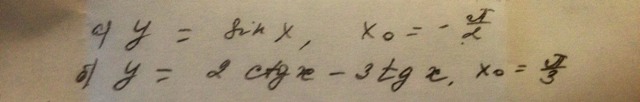 а) y = sin x, x₀ = -π/2
б) y = 2 ctgx - 3 tg x, x₀ = π/3